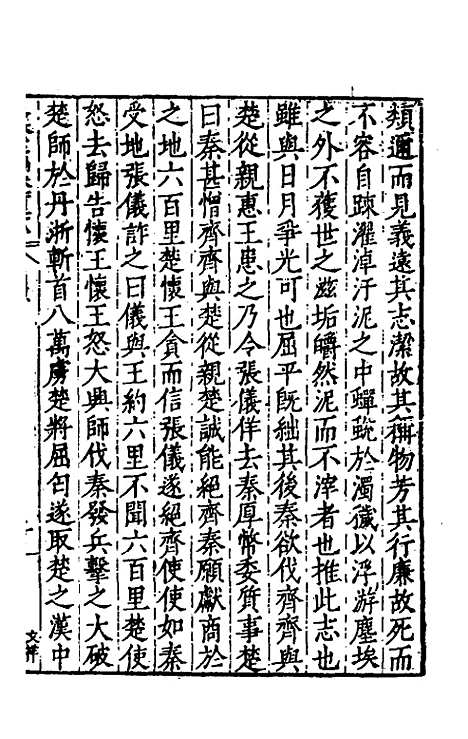 類邇而見義遠其志潔故其稱物芳其行廉故死而
不容自踈濯淖汙泥之中蟬蛻於濁穢以浮游塵埃
之外不獲世之滋垢皭然泥而不滓者也推此志也
雖與日月爭光可也屈平旣絀其後秦欲伐齊齊與
楚從親惠王患之乃令張儀佯去秦厚幣委質事楚
曰秦甚憎齊齊與楚從親楚誠能絕齊秦願獻商於
之地六百里楚懷王貪而信張儀遂絕齊使使如秦
受地張儀詐之曰儀與王約六里不聞六百里楚使
怒去歸告懷王懷王怒大興師伐秦秦發兵擊之大破
楚師於丹淅斬首八萬虜楚將屈匄遂取楚之漢中